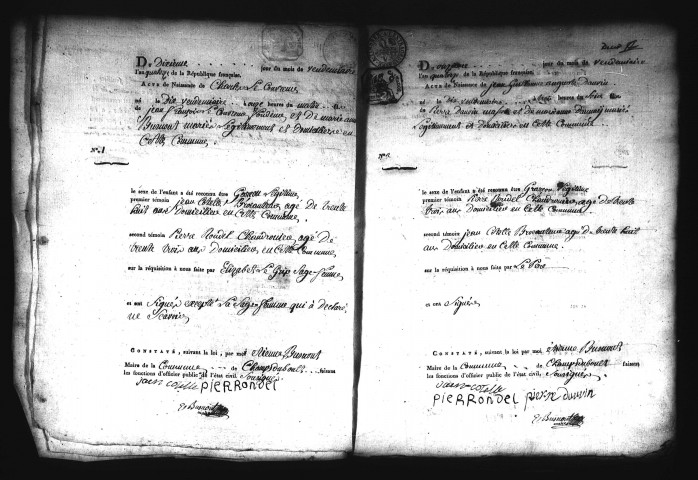 Du Dixieme jour du mois de vendemiaire
l'an quatorze de la République française.
Acte de Naissance de Charles Le Couvreur
né le Dix vendemiaire onze heures du matin
de jean françois Le Couvreur et De marie anne
Brunout mariés Légitimement et Domiciliés en
Cette Commune
N° 1
le sexe de l'enfant a été reconnu être Garçon Légitime
premier témoin jean Cotelle agé De trente
huit ans Domicilier en Cette Commune,
second témoin Pierre Rondel agé De
trente trois ans Domicilier en Cette Commune,
sur la réquisition à nous faite par Elizabeth Le Sage-femme
et ont Signés excepté La Sage-femme qui à declaré
ne Scavoir
Constaté, suivant la loi, par moi Brunout
Maire de la Commune de Champdubout faisant
les fonctions d'officier public de l'état civil, Soussigné
jean cotelle PIERRONDEL
E Brunout
Du jour du mois de vendemiaire
l'an quatorze de la République française.
Acte de Naissance de jean Guillaume auguste Dauvin
né le Dix vendemiaire heures du Soir
de Pierre Dauvin et de mariés
Légitimement et Domiciliés en Cette Commune
le sexe de l'enfant a été reconnu être Garçon Légitime
premier témoin Pierre Rondel agé de trente
trois ans Domicilier en Cette Commune
second témoin jean Cotelle agé De trente huit
ans Domicilier en Cette Commune
sur la réquisition à nous faite par Le Pere
et ont Signés
Constaté, suivant la loi, par moi Brunout
Maire de la Commune de Champdubout faisant
les fonctions d'officier public de l'état civil, Soussigné
jean cotelle
PIERRONDEL pierre dauvin
E Brunout